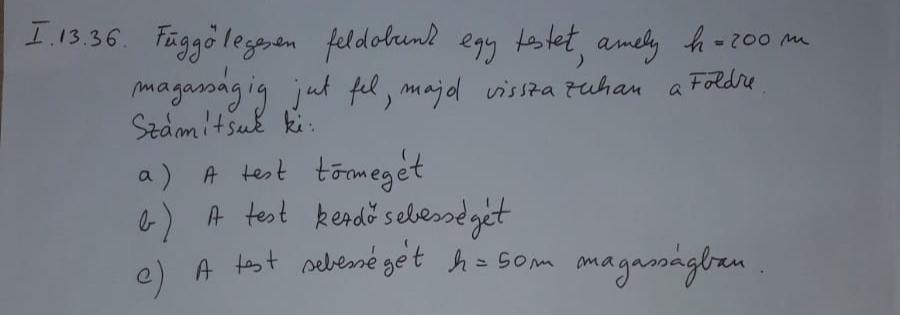 I.13.36. Függőlegesen feldobunk egy testet, amely h = 200 m
magasságig jut fel, majd vissza zuhan a Földre.
Számítsuk ki:
a) A test tömegét
b) A test kezdősebességét
c) A test sebességét h = 50m magasságban.